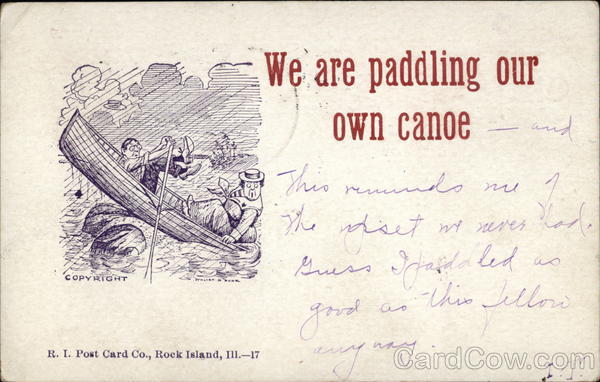 We are paddling our
own canoe — and
This reminds me of
the upset we never had.
Guess I paddled as
good as this fellow
anyway.
COPYRIGHT
R. I. Post Card Co., Rock Island, Ill.—17
CardCow.com